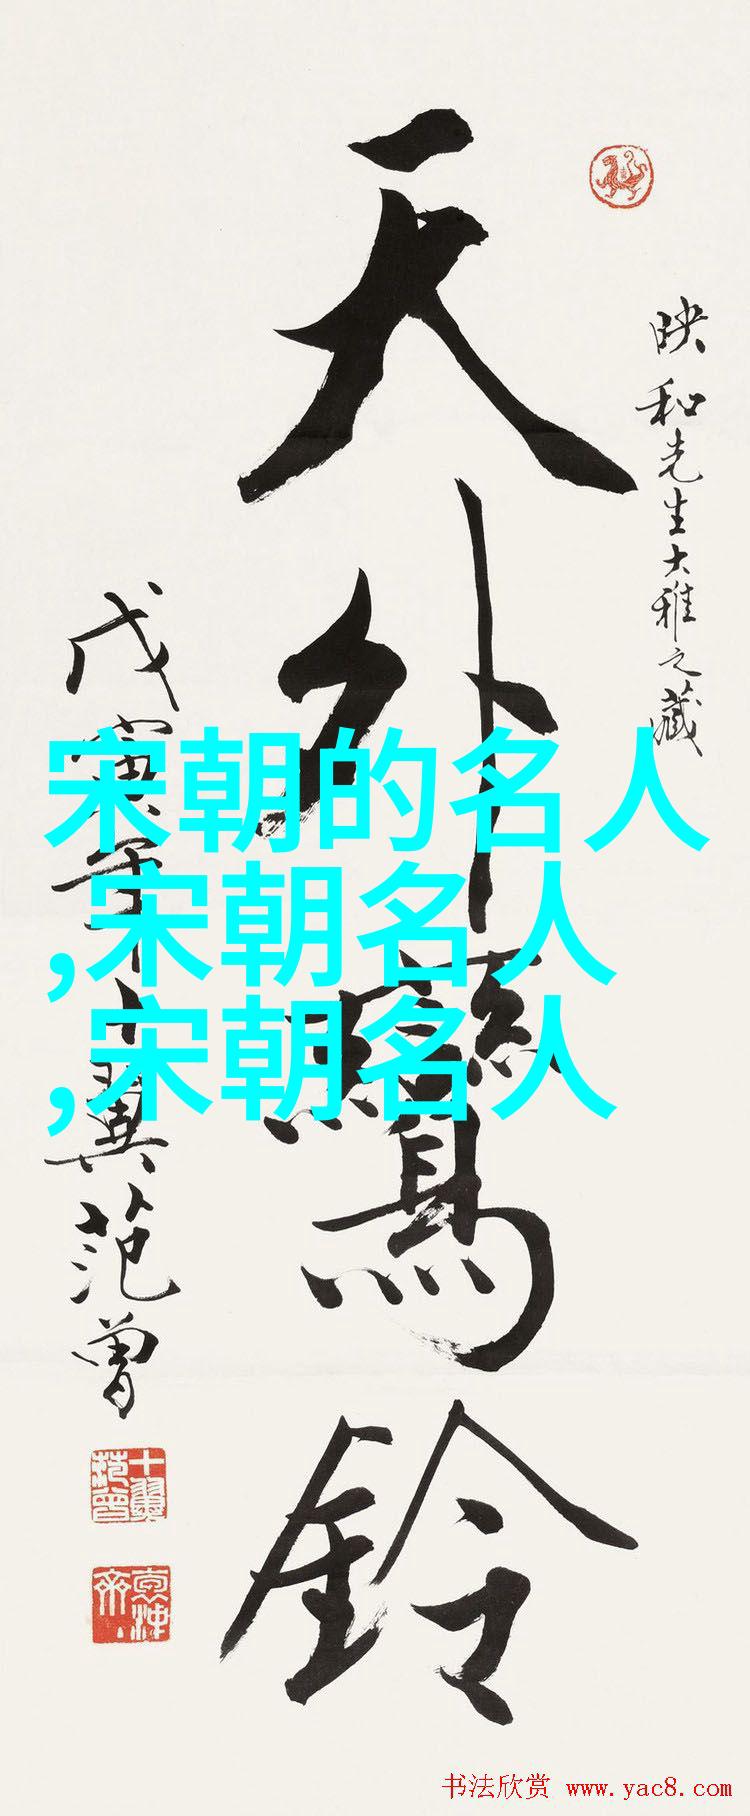 天外鸞鈴
映和先生大雅之藏
戊寅年十翼范曾
十翼范曾
宋朝的名人
,宋朝名人
,宋朝名人
书法欣赏 www.yac8.com